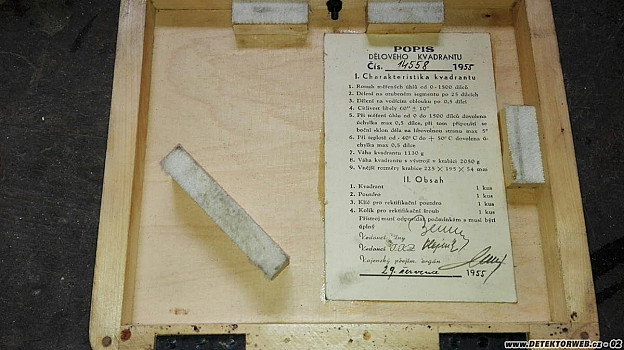 POPIS
DĚLOVÉHO KVADRANTU
Čís. 14558 1955
I. Charakteristika kvadrantu
1. Rozsah měřených úhlů od 0-1500 dílců
2. Dělení na ozubeném segmentu po 25 dílcích
3. Dělení na vodícím oblouku po 0,5 dílci
4. Citlivost libely 60" ± 10"
5. Při měření úhlu od 0 do 1500 dílců dovolena
úchylka max 0,5 dílce, při tom připouští se
boční sklon děla na libovolnou stranu max 5°
6. Při teplotě od - 40° C do + 50° C dovolena ú-
chylka max 0,5 dílce
7. Váha kvadrantu 1130 g
8. Váha kvadrantu s výstrojí v krabici 2050 g
9. Vnější rozměry krabice 225 × 195 × 54 mm
II. Obsah
1. Kvadrant 1 kus
2. Pouzdro 1 kus
3. Klíč pro rektifikační pouzdro 1 kus
4. Kolík pro rektifikační šroub 1 kus
Přístroj musí odpovídat podmínkám a musí být
úplný
Vedoucí
Vedoucí O.T.K.
Vojenský přejím. orgán
29. července 1955
www.DETEKTORWEB.cz - 02